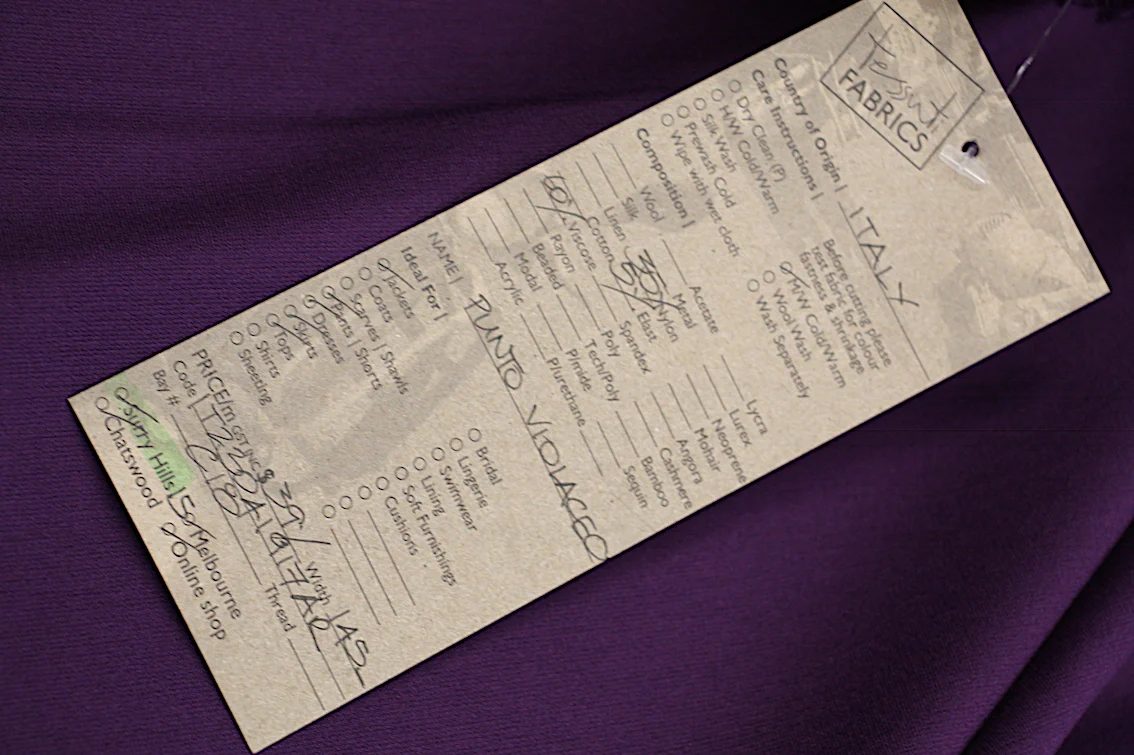 tessuti
FABRICS
Country of Origin | ITALY
Care Instructions |
Before cutting please
test fabric for colour
fastness & shrinkage
Dry Clean (P)
H/W Cold/Warm
Silk Wash
Prewash Cold
Wipe with wet cloth
H/W Cold/Warm
Wool Wash
Wash Separately
Composition |
Wool
Silk
Linen
Cotton
60% Viscose
Rayon
Beaded
Modal
Acrylic
Acetate
Metal
35% Nylon
5% Elast
Spandex
Poly
Tech/Poly
P/mide
P/urethane
Lycra
Lurex
Neoprene
Mohair
Angora
Cashmere
Bamboo
Sequin
NAME | PUNTO VIOLACEO
Ideal For |
Jackets
Coats
Scarves | Shawls
Pants | Shorts
Dresses
Skirts
Tops
Shirts
Sheeting
Bridal
Lingerie
Swimwear
Lining
Soft Furnishings
Cushions
PRICE/m GST INC $ 39/ Width 145
Code |
Bay # Thread
Surry Hills | Melbourne
Chatswood Online shop